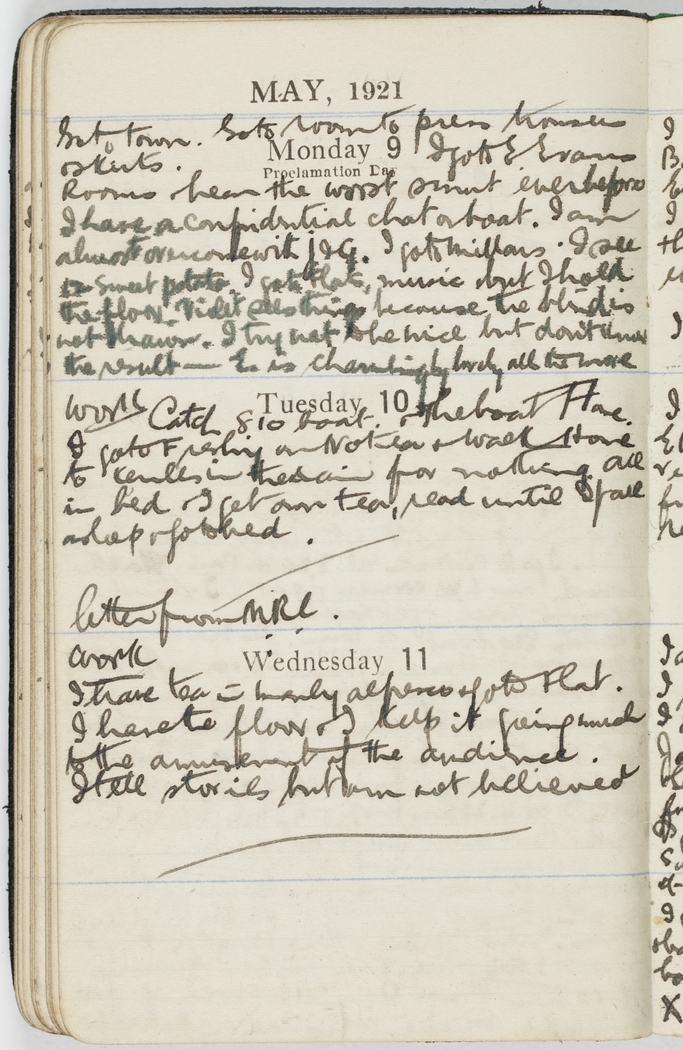 MAY, 1921
to town. Goto room to press trousers
Monday 9 I goto E Evans
& skirts.
Proclamation Day
Rooms & hear the worst smut ever before
I have a confidential chat or boat. I am
almost overcome with I goto Millars. I see
sweet potato. I goto Flats, music but I hold
the floor. Violet sees things because the blind is
not drawn. I try not to be nice but don't know
the result — E. is charming & lovely all the more
Tuesday 10
Work Catch 8 10 boat. & the boat Home.
I goto on & walk Home
to in the rain for nothing all
in bed. I get own tea, read until I fall
asleep & goto bed.
letter from MRC.
Wednesday 11
Work
I have tea in manly alfresco & goto Flat.
I have the floor & I keep it going much
to the amusement of the audience.
I tell stories but am not believed